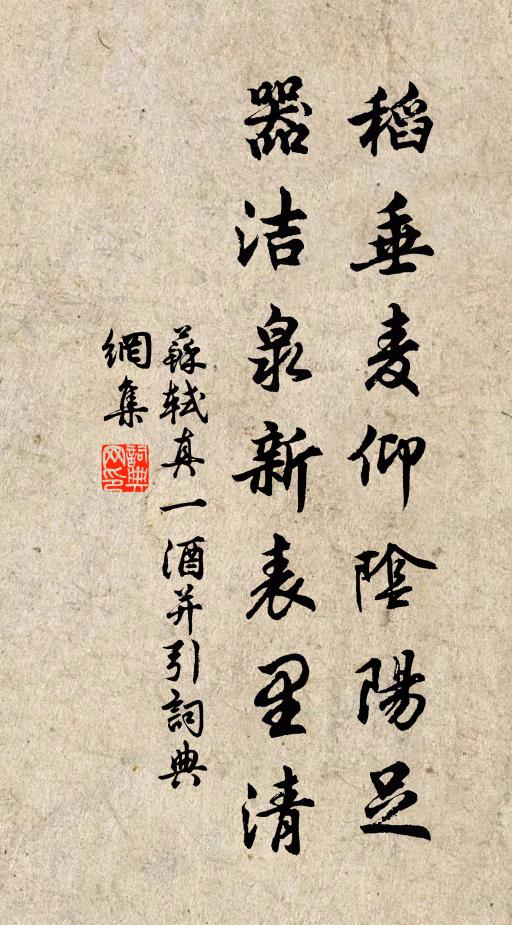 稻垂麦仰陰陽足
器洁泉新表里清
蘇軾真一酒并引詞典
網集
詞典
网印